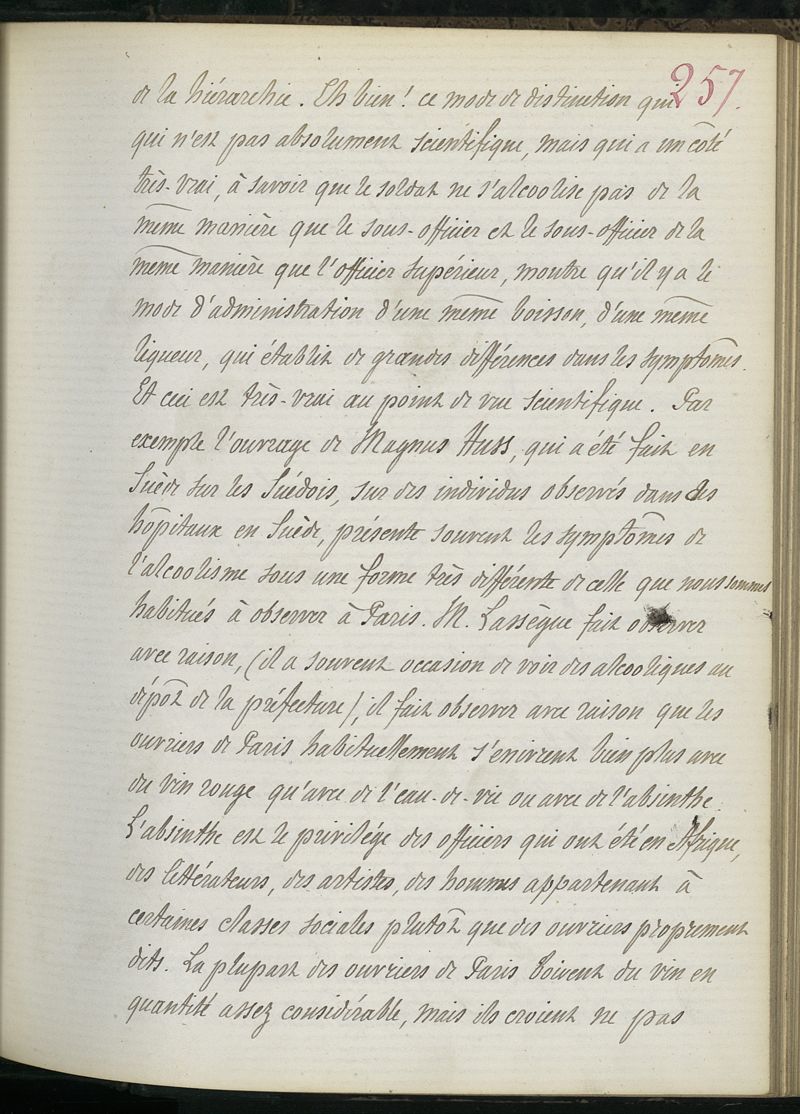 257.
de la hiérarchie. Eh bien! ce mode de distinction qui
qui n'est pas absolument scientifique, mais qui a un côté
très-vrai, à savoir que le soldat ne s'alcoolise pas de la
même manière que le sous-officier et le sous-officier de la
même manière que l'officier supérieur, montre qu'il y a le
mode d'administration d'une même boisson, d'une même
liqueur, qui établit de grandes différences dans les symptômes.
Et ceci est très-vrai au point de vue scientifique. Par
exemple l'ouvrage de Magnus Huss, qui a été fait en
Suède sur les Suédois, sur des individus observés dans les
hôpitaux en Suède, présente souvent les symptômes de
l'alcoolisme sous une forme très différente de celle que nous sommes
habitués à observer à Paris. M. Lassègue fait observer
avec raison, (il a souvent occasion de voir des alcooliques au
dépôt de la préfecture), il fait observer avec raison que les
ouvriers de Paris habituellement s'enivrent bien plus avec
du vin rouge qu'avec de l'eau-de-vie ou avec de l'absinthe.
L'absinthe est le privilége des officiers qui ont été en Afrique,
des littérateurs, des artistes, des hommes appartenant à
certaines classes sociales plutôt que des ouvriers proprement
dits. La plupart des ouvriers de Paris boivent du vin en
quantité assez considérable, mais ils croient ne pas